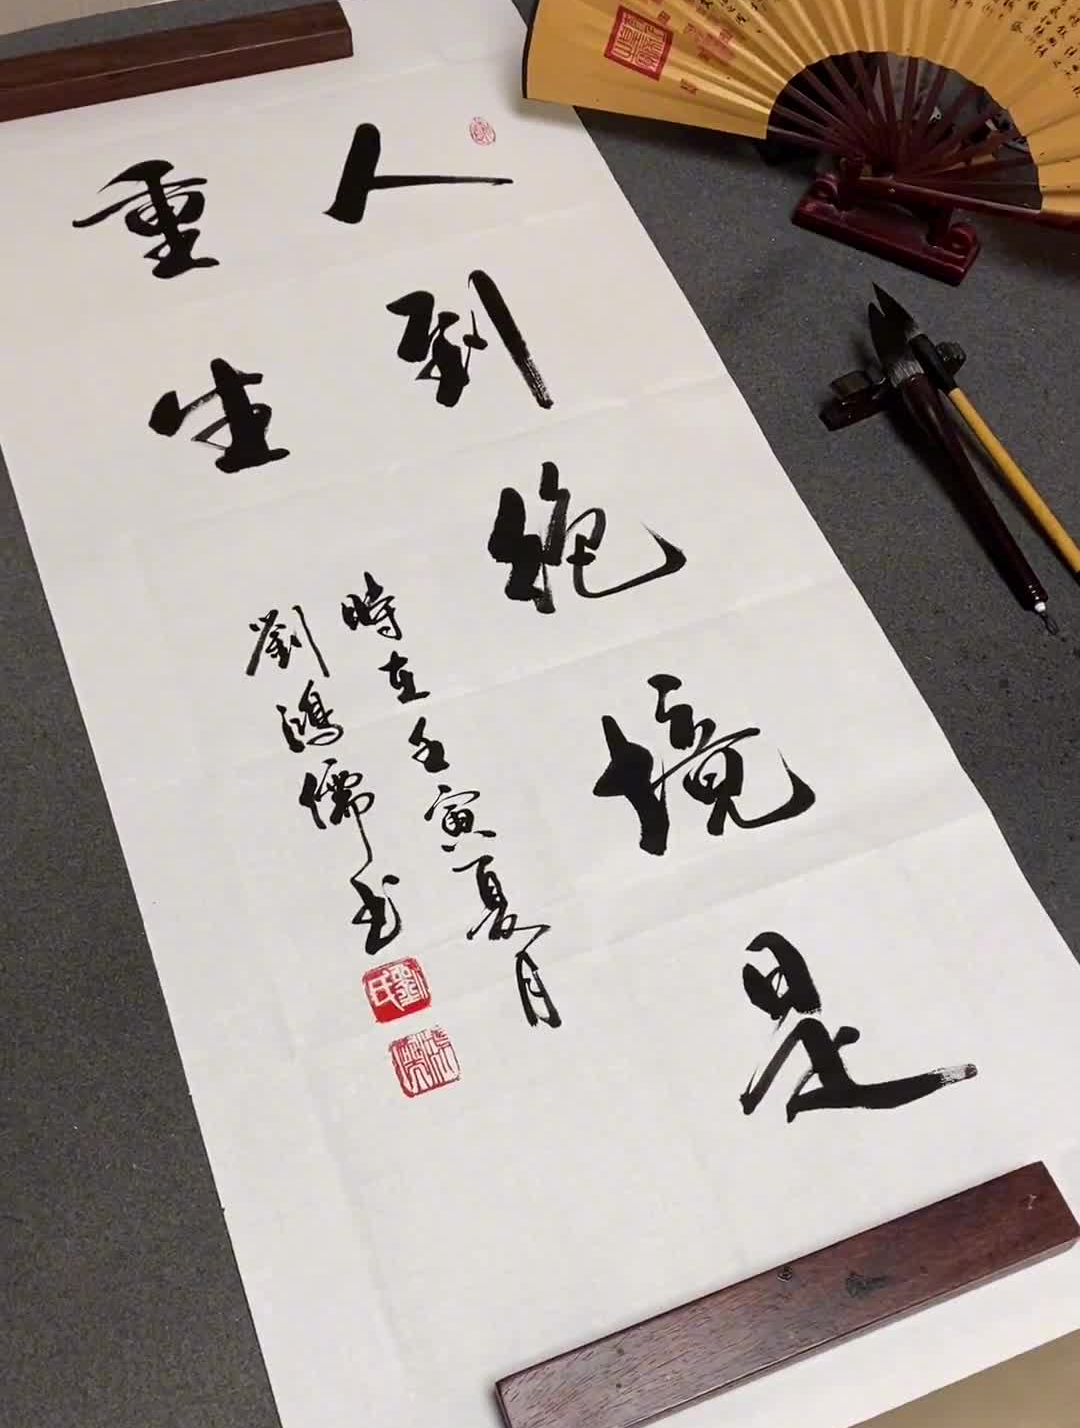 人到绝境是
重生
時在壬寅夏月
劉鴻儒书
劉氏